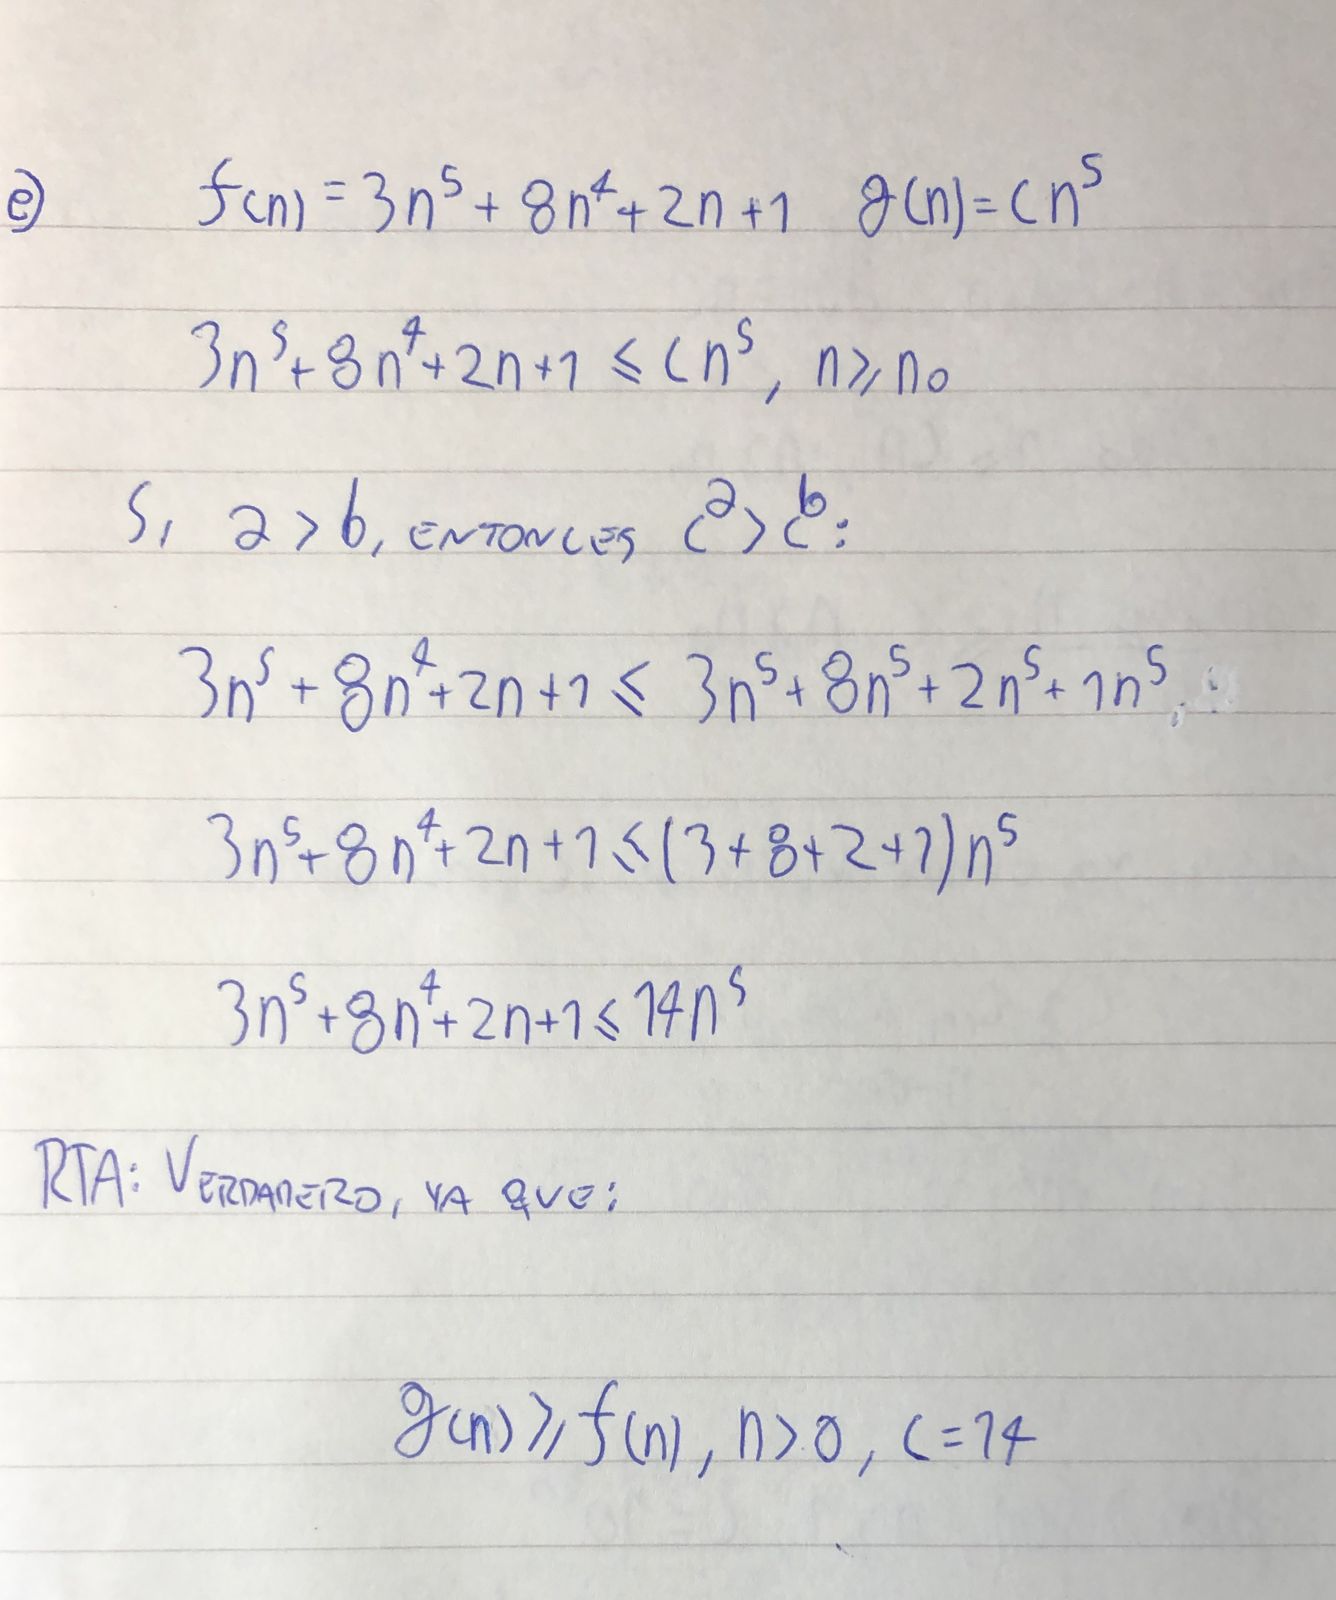 e) f(n) = 3n⁵ + 8n⁴ + 2n + 1 g(n) = cn⁵
3n⁵ + 8n⁴ + 2n + 1 ⩽ cn⁵, n ⩾ n₀
Si a > b, ENTONCES cᵃ > cᵇ:
3n⁵ + 8n⁴ + 2n + 1 ⩽ 3n⁵ + 8n⁵ + 2n⁵ + 1n⁵
3n⁵ + 8n⁴ + 2n + 1 ⩽ (3 + 8 + 2 + 1)n⁵
3n⁵ + 8n⁴ + 2n + 1 ⩽ 14n⁵
RTA: VERDADERO, YA QUE:
g(n) ⩾ f(n), n > 0, c = 14